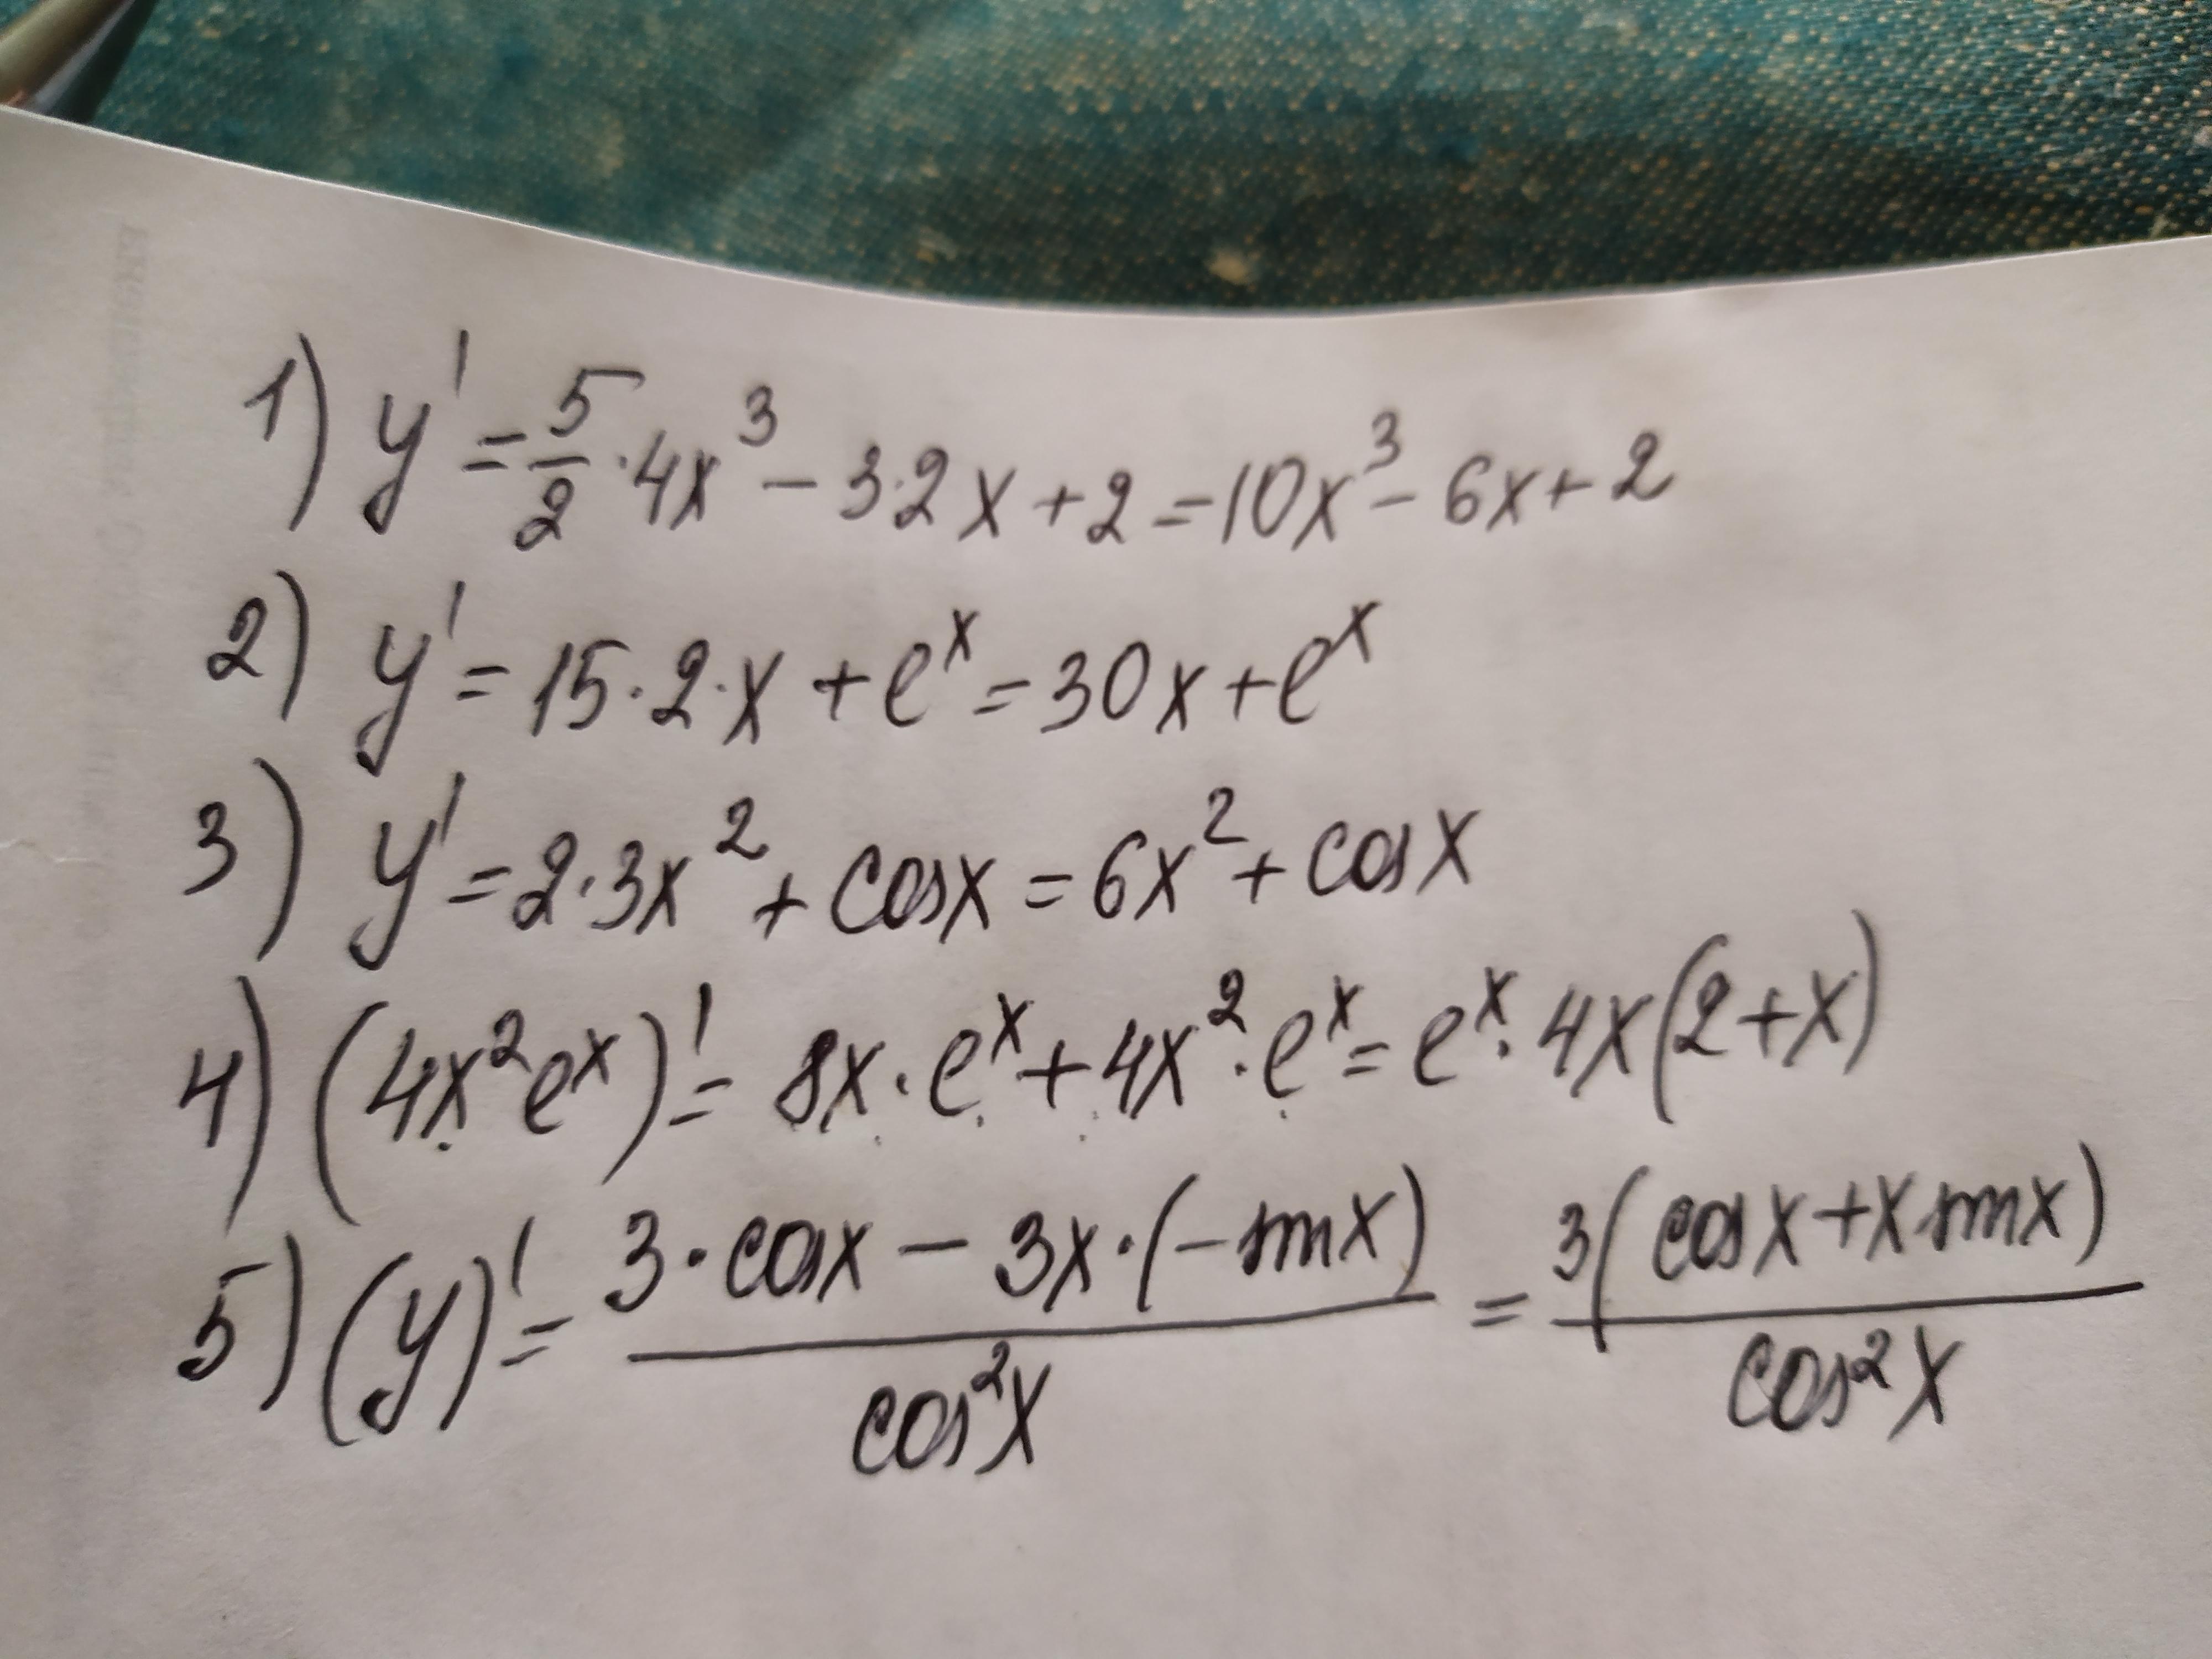 1) y' = 5/2 · 4x³ - 3·2x + 2 = 10x³ - 6x + 2
2) y' = 15 · 2 · x + eˣ = 30x + eˣ
3) y' = 2·3x² + cosx = 6x² + cosx
4) (4x²eˣ)' = 8x · eˣ + 4x² · eˣ = eˣ · 4x(2+x)
5) (y)' = (3 · cosx - 3x · (-sinx)) / cos²x = 3(cosx + x sinx) / cos²x